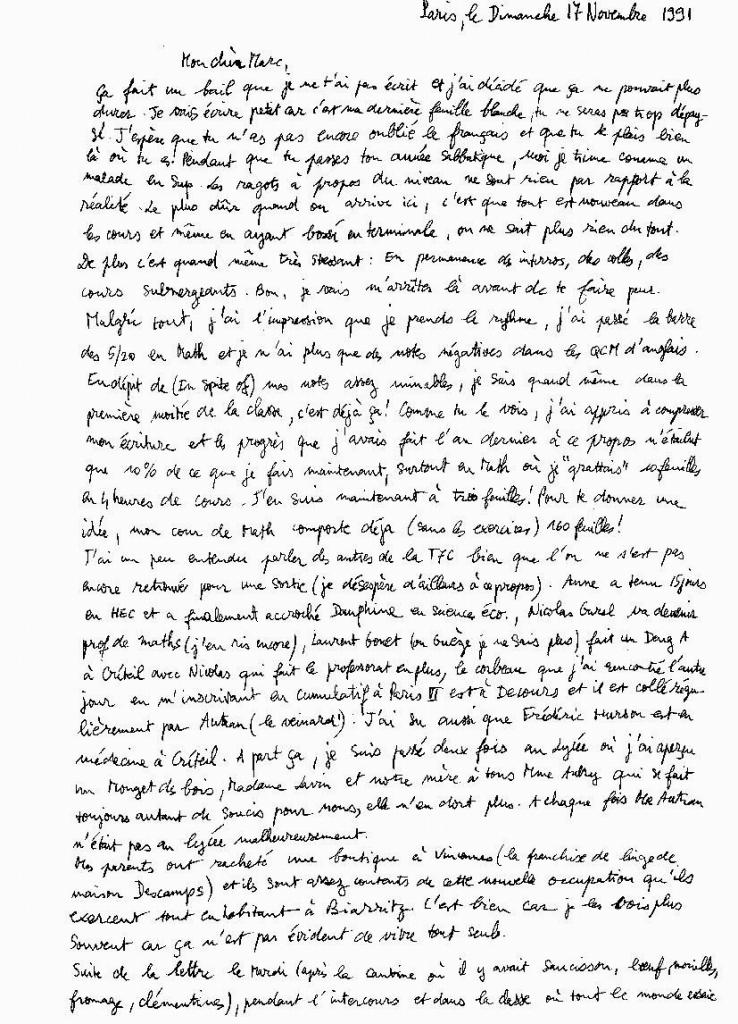 Paris, le Dimanche 17 Novembre 1991
Mon cher Marc,
Ça fait un bail que je ne t'ai pas écrit et j'ai décidé que ça ne pouvait plus
durer. Je vais écrire petit car c'est ma dernière feuille blanche, tu ne seras pas trop dépay-
sé. J'espère que tu n'as pas encore oublié le français et que tu te plais bien
là où tu es. Pendant que tu passes ton année sabbatique, moi je trime comme un
malade en Sup. Les ragots à propos du niveau ne sont rien par rapport à la
réalité. Le plus dûr quand on arrive ici, c'est que tout est nouveau dans
les cours et même en ayant bossé en terminale, on ne sait plus rien du tout.
De plus c'est quand même très stessant : En permanence des interros, des colles, des
cours submergeants. Bon, je vais m'arrêter là avant de te faire peur.
Malgré tout, j'ai l'impression que je prends le rythme, j'ai passé la barre
des 5/20 en Math et je n'ai plus que des notes négatives dans les QCM d'anglais.
En dépit de (In spite of) mes notes assez minables, je suis quand même dans la
première moitié de la classe, c'est déjà ça! Comme tu le vois, j'ai appris à compresser
mon écriture et les progrès que j'avais fait l'an dernier à ce propos n'étaient
que 10% de ce que je fais maintenant, surtout en Math où je "grattais" 10 feuilles
en 4 heures de cours. J'en suis maintenant à trois feuilles! Pour te donner une
idée, mon cour de Math comporte déja (sans les exercices) 160 feuilles!
J'ai un peu entendu parler des autres de la T7C bien que l'on ne s'est pas
encore retrouvé pour une sortie (je désespère d'ailleurs à ce propos). Anne a tenu 15 jours
en HEC et a finalement accroché Dauphine en science éco., Nicolas va devenir
prof de maths (j'en ris encore), Laurent (ou je ne sais plus) fait un Deug A
à Créteil avec Nicolas qui fait le professorat en plus, le corbeau que j'ai rencontré l'autre
jour en m'inscrivant en cumulatif à Paris VI est à Decours et il est collé régu-
lièrement par Autran (le veinard!). J'ai su aussi que Frédéric est en
médecine à Créteil. A part ça, je suis passé deux fois au Lycée où j'ai aperçu
un Monget des bois, Madame et notre mère à tous Mme Aubry qui se fait
toujours autant de soucis pour nous, elle n'en dort plus. A chaque fois Mr Autran
n'était pas au lycée malheureusement.
Mes parents ont racheté une boutique à Vincennes (la franchise de linge de
maison Descamps) et ils sont assez contents de cette nouvelle occupation qu'ils
exercent tout en habitant à Biarritz. C'est bien car je les vois plus
souvent car ça n'est pas évident de vivre tout seul.
Suite de la lettre le Mardi (après la cantine où il y avait saucisson, bœuf, morilles,
fromage, clémentines), pendant l'intercours et dans la classe où tout le monde essaie